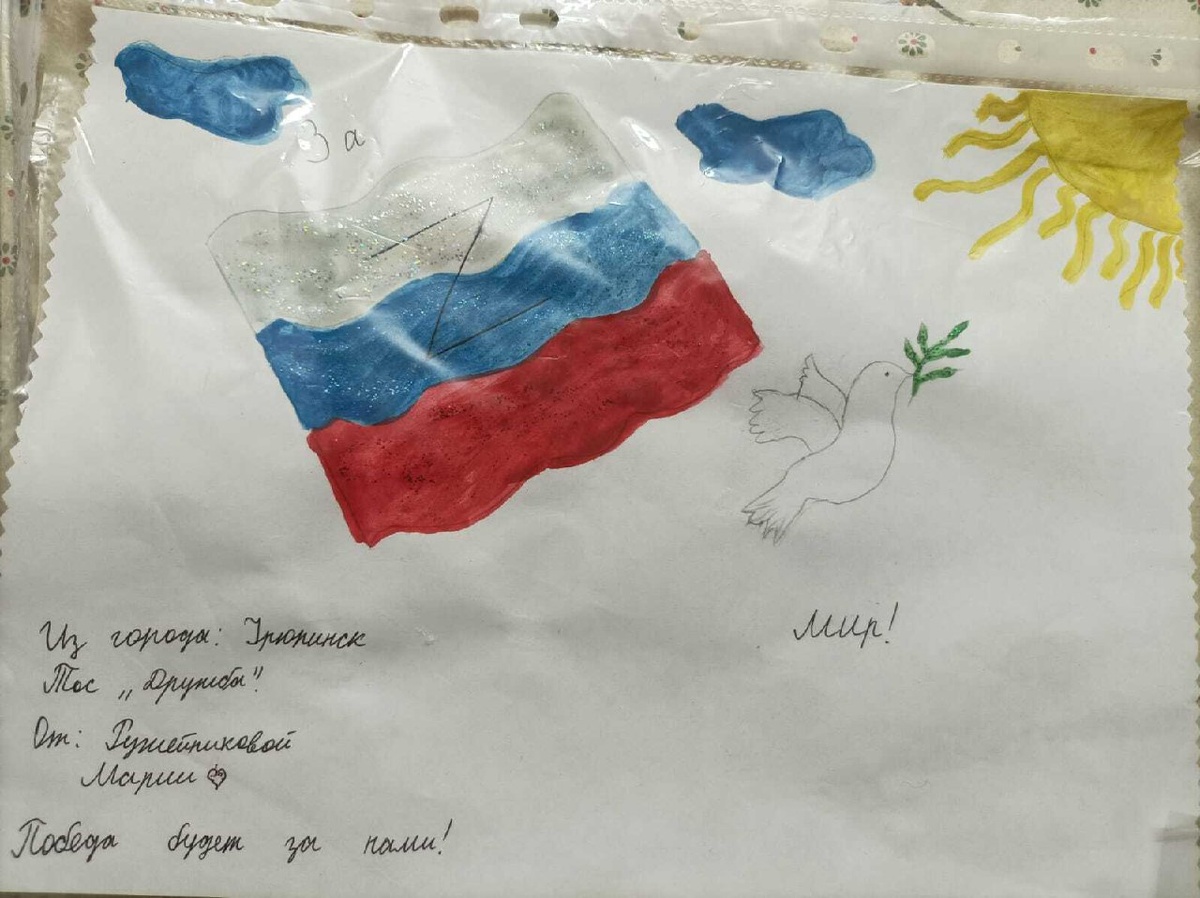 За
Z
Из города: Урюпинск
Тос „Дружба".
Мир!
От: Ружейниковой
Марии
Победа будет за нами!